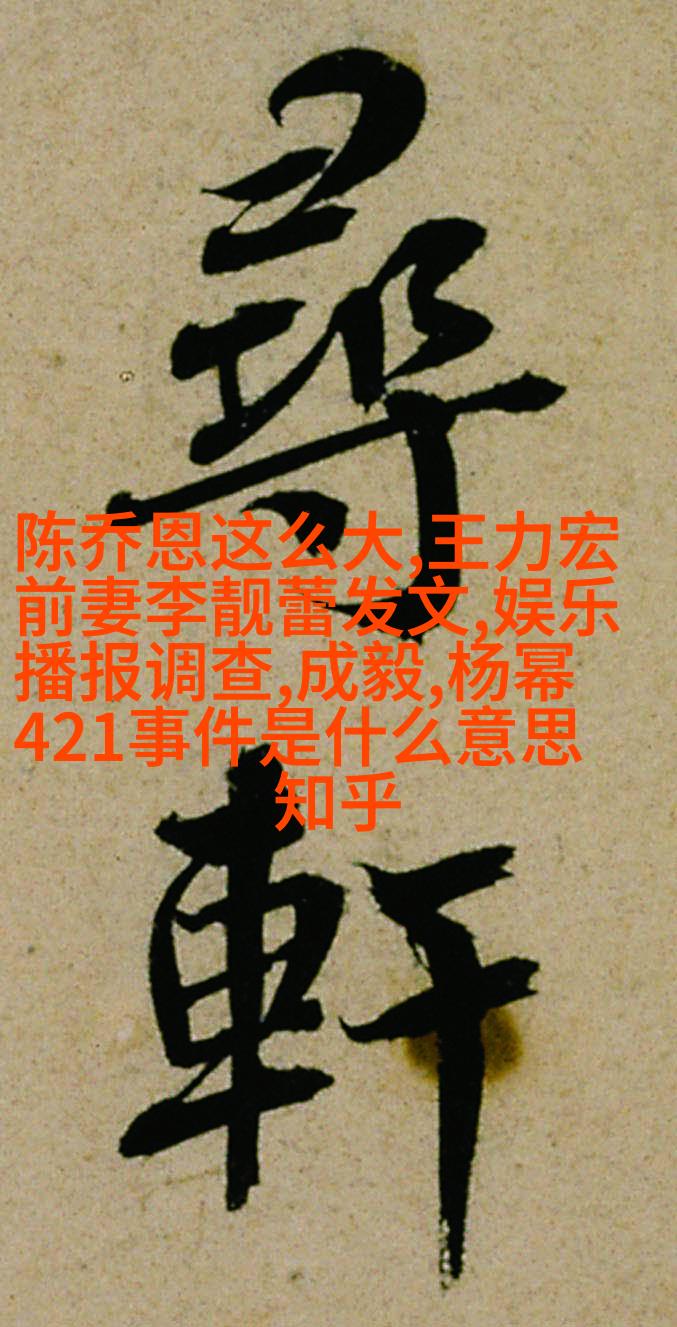 尋
陈乔恩这么大,王力宏
前妻李靓蕾发文,娱乐
播报调查,成毅,杨幂
421事件是什么意思
知乎
軒